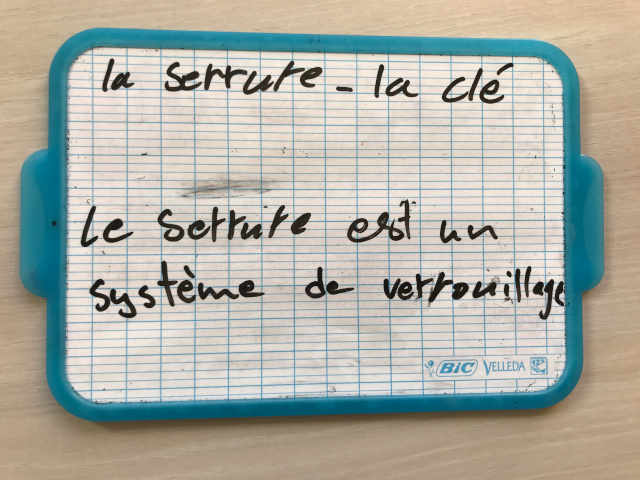 la serrure - la clé
Le serrure est un
système de verrouillage
BIC VELLEDA